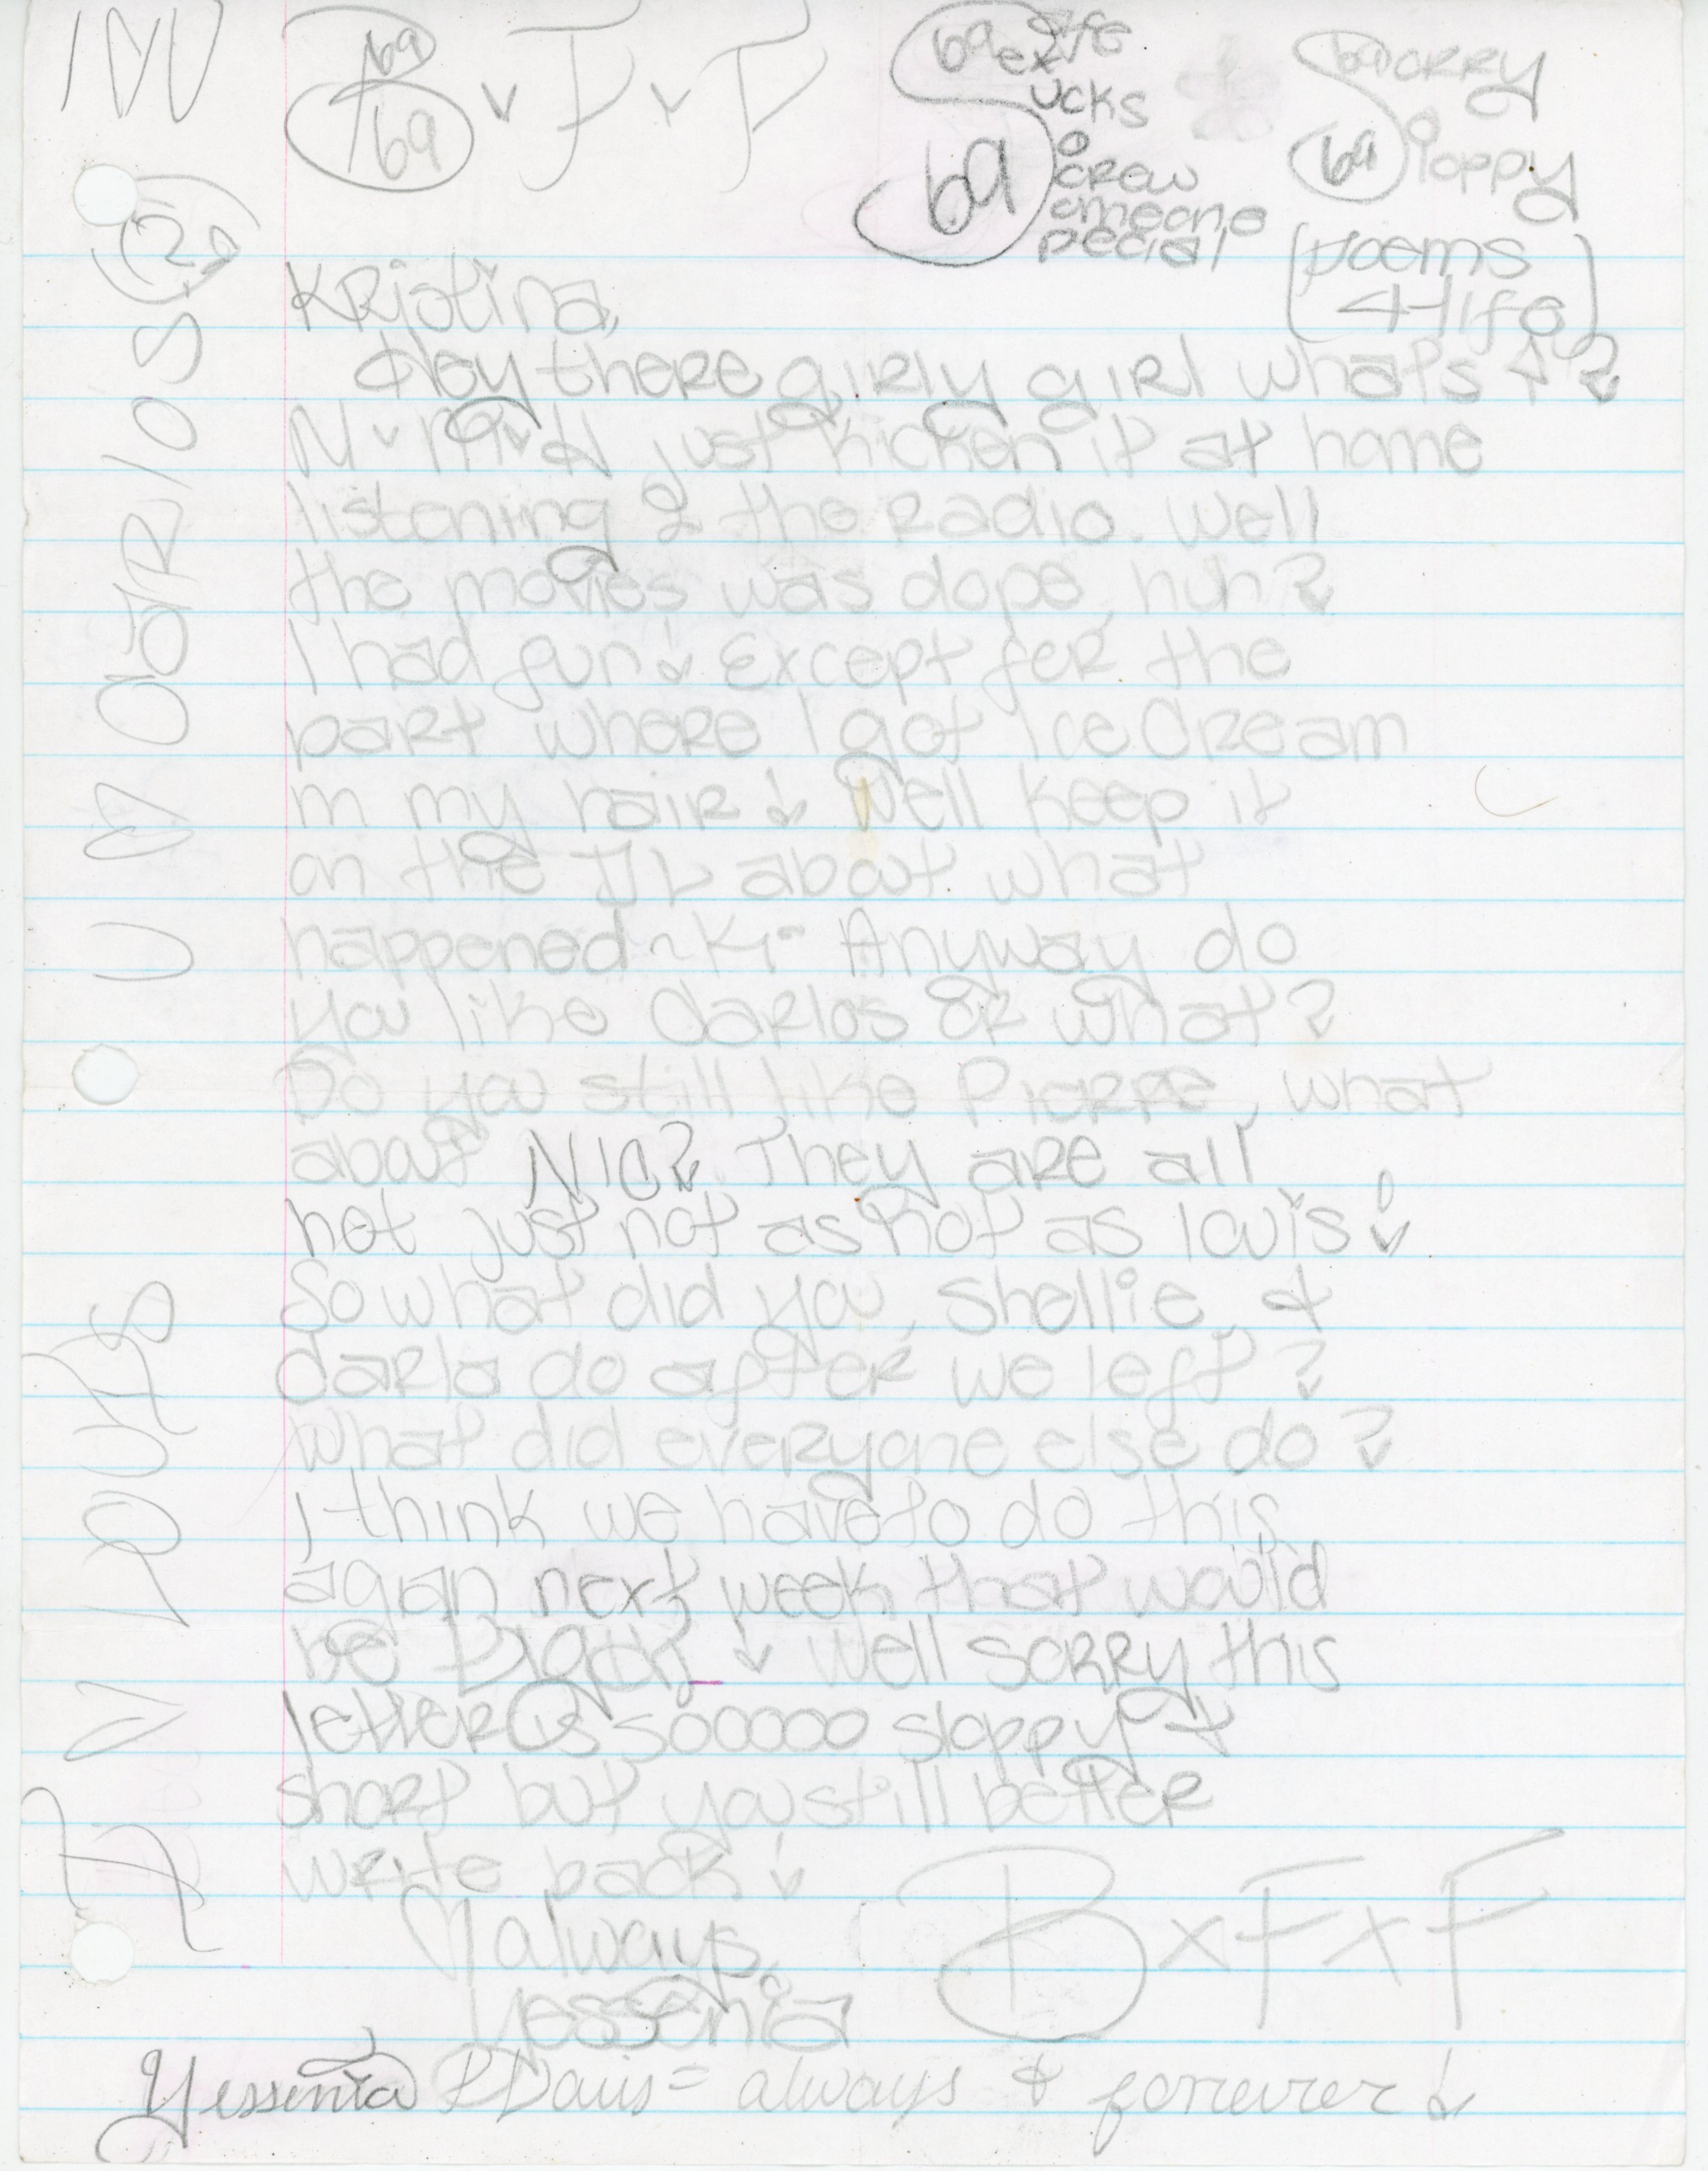 69
69
B v F v F
69
69
ife
ex
ucks
o
crew
omeone
pecial
69
69
orry
o
loppy
[poems
4-life]
Kristina,
Hey there girly girl what's ↑?
N v M v H just kicken it at home
listening 2 the radio. Well
the movies was dope, huh?
I had fun! Except for the
part where I got Ice Cream
in my hair! Well keep it
on the DL about what
happened ~K~ Anyway do
you like Carlos or what?
Do you still like Pierre, what
about Nic? They are all
hot just not as hot as louis!
So what did you, Shellie, &
Carla do after we left?
What did everyone else do?
I think we have to do this
again next week that would
be
! Well sorry this
letter is sooooo sloppy &
short but you still better
write back!
♡ always,
Yessenia
B x F x F
Yessenia & Louis = always & forever!
I ♡ LOUIS
U ♡ Carlos?